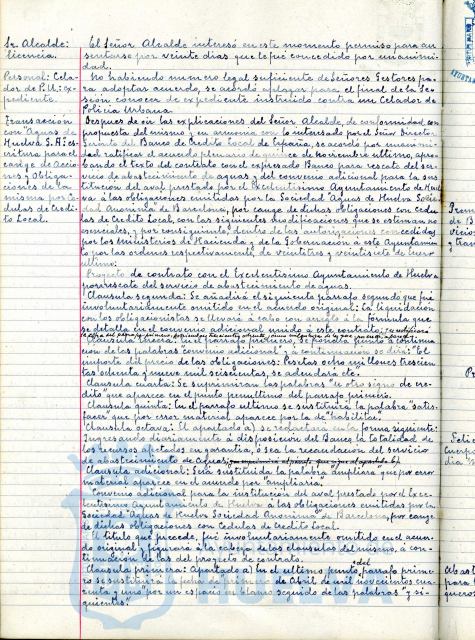 Sr. Alcalde:
licencia.
El Señor Alcalde interesó en este momento permiso para au
sentarse por veinte días que le fué concedido por unanimi
dad.
Personal: Cela-
dor de P.U.: ex-
pediente.
No habiendo número legal suficiente de Señores Gestores pa-
ra adoptar acuerdo, se acordó aplazar para el final de la Se-
sión conocer de expediente instruido contra un Celador de
Policía Urbana.
Transacción
con "Aguas de
Huelva S.A": es-
critura para el
cange de Accio-
nes y Obliga-
ciones de la
misma por Cé-
dulas de Crédi-
to Local.
Después de oir las explicaciones del Señor Alcalde, de conformidad, con
propuesta del mismo y en armonía con lo interesado por el Señor Director
Gerente del Banco de Crédito Local de España, se acordó por unanimi-
dad ratificar el acuerdo plenario de quince de noviembre último, apro-
bando el texto de contrato con el expresado Banco para rescate del ser-
vicio de abastecimiento de aguas y del convenio adicional para la sus-
titución del aval prestado por el Excelentísimo Ayuntamiento de Huel
va á las obligaciones emitidas por la Sociedad "Aguas de Huelva Socie
dad Anónima" de Barcelona, por cange de dichas obligaciones con cédu
las de Crédito Local, con las siguientes modificaciones que se estiman no
esenciales, y por consiguiente, dentro de las autorizaciones concedidas
por los Ministerios de Hacienda y de la Gobernación á este Ayuntamien
to por las órdenes respectivamente, de veintitres y veintisiete de Enero
último:
Proyecto de contrato con el Excelentísimo Ayuntamiento de Huelva
para rescate del servicio de abastecimiento de aguas.
Cláusula segunda: Se añadirá el siguiente párrafo segundo que fué
involuntariamente omitido en el acuerdo original: La liquidación
con los obligacionistas se llevará á cabo con arreglo á la fórmula que
se detalla en el convenio adicional unido á este contrato;
Cláusula tercera: En el párrafo primero, se pondrá punto á continua-
ción de las palabras "convenio adicional" y á continuación se dirá: "El
importe del precio de las obligaciones: Pesetas ocho millones trescien-
tas ochenta y nueve mil seiscientas, se adeudará etc.
Cláusula cuarta: Se suprimirán las palabras "u otro signo de cré-
dito" que aparece en el punto penúltimo del párrafo primero.
Cláusula quinta: En el párrafo último se sustituirá la palabra "satis-
facer que por error material aparece por la de "habilitar".
Cláusula octava: El apartado a) se redactará en la forma siguiente:
Ingresando diariamente á disposición del Banco la totalidad de
los recursos afectados en garantía, ó sea la recaudación del servicio
de abastecimiento de Aguas,
Cláusula adicional: Será sustituida la palabra "ampliará" que por error
material aparece en el acuerdo por "ampliaría".
Convenio adicional para la institución del aval prestado por el Exce-
lentísimo Ayuntamiento de Huelva á las obligaciones emitidas por la
Sociedad "Aguas de Huelva Sociedad Anónima" de Barcelona, por cange
de dichas obligaciones con Cédulas de Crédito Local.
El título que precede, fué involuntariamente omitido en el acuer-
do original y figurará á la cabeza de las cláusulas del mismo, á con-
tinuación de las del proyecto de contrato.
Cláusula primera: Apartado a) En el último punto, del párrafo prime-
ro se sustituirá la fecha de primero de Abril de mil novecientos cua-
renta y uno por un espacio en blanco seguido de las palabras "y si-
guientes".